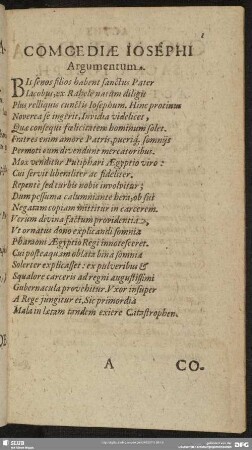 COMOEDIÆ IOSEPHI
Argumentum.
BIs senos filios habens sanctus Pater
Iacobus, ex Rahele natum diligit
Plus relliquis cunctis Iosephum. Hinc protinus
Noverca se ingerit, Invidia videlicet,
Quæ consequi fœlicitatem hominum solet.
Fratres enim amore Patris, pueriq́; somnijs
Permoti eum divendunt mercatoribus.
Mox venditur Putiphari Ægyptio viro:
Cui servit liberaliter ac fideliter.
Repentè sed turbis nobis involvitur;
Dum pessuma calumniante hera, ob sui
Negatam copiam mittitur in carcerem.
Verùm divina factum providentia,
Ut ornatus dono explicandi somnia
Pharaoni Ægyptio Regi innotesceret.
Cui posteaquam oblata bina somnia
Solerter explicasset: ex pulveribus &
Squalore carceris ad regni augustissimi
Gubernacula provehitur. Vxor insuper
A Rege jungitur ei. Sic primordia
Mala in lætam tandem exiere Catastrophen.
A
CO.
SLUB